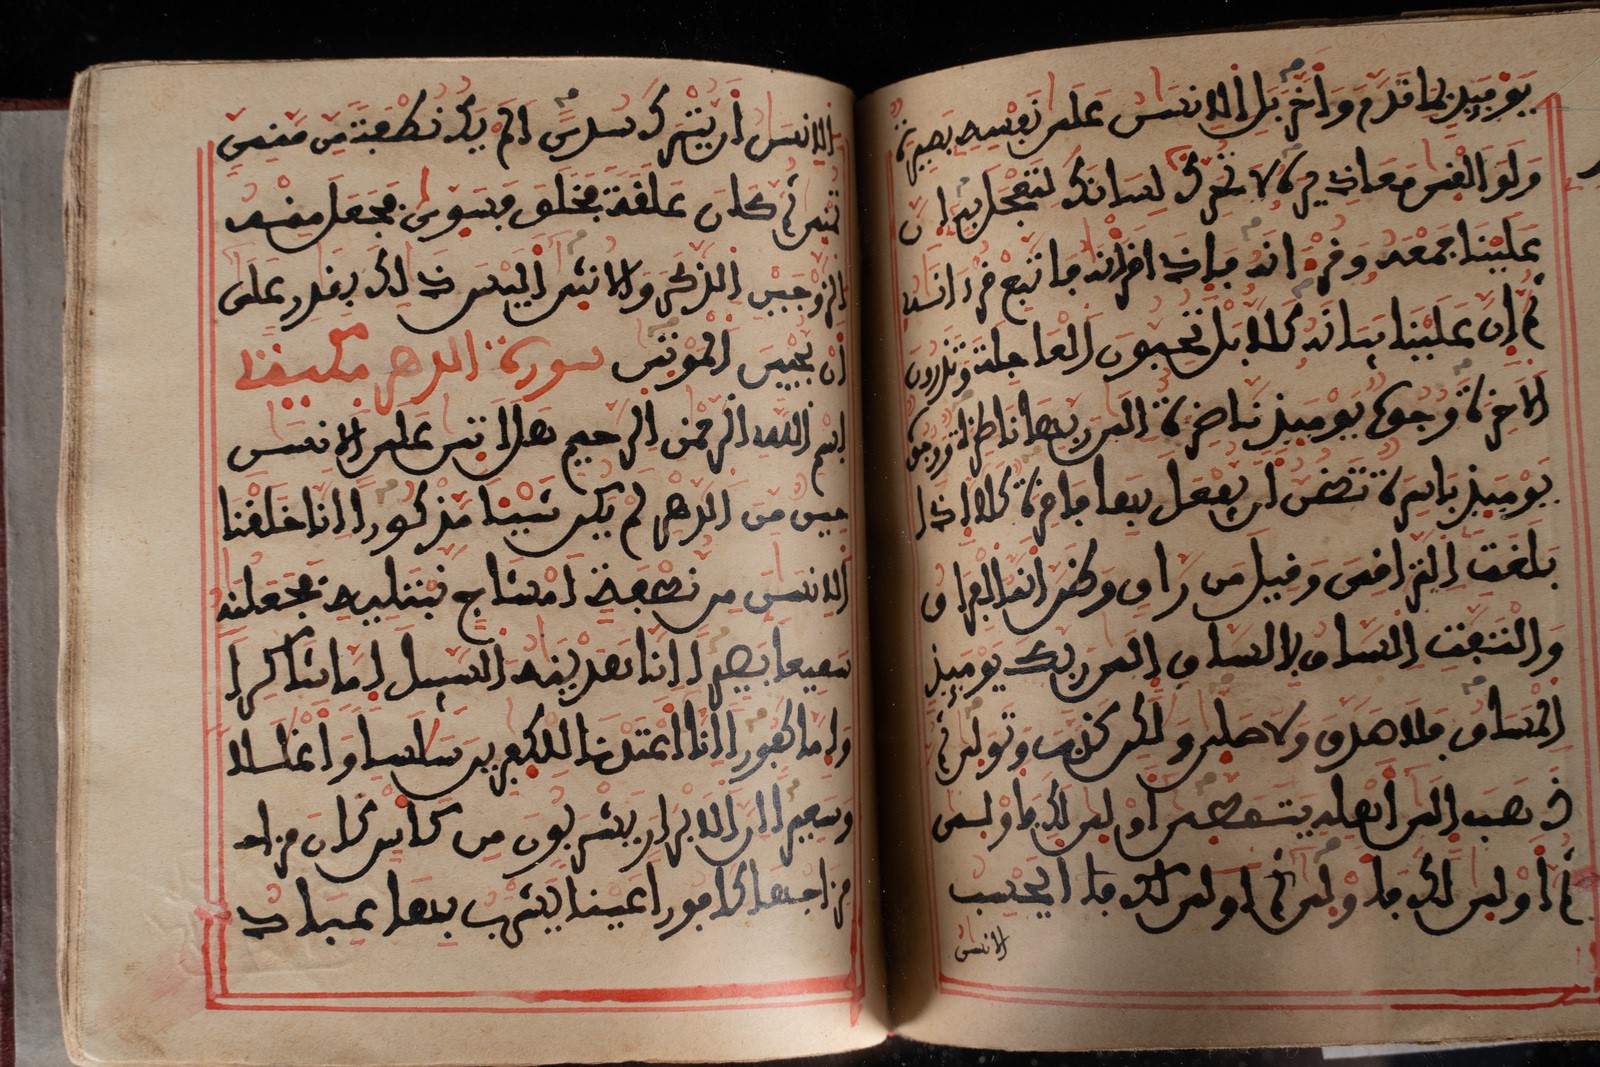 يومئذ بما قدم وأخر بل الانسن على نفسه بصيرة
ولو ألقى معاذيره لا تحرك به لسانك لتعجل به ان
علينا جمعه وقرءانه فإذا قرأنه فاتبع قرءانه
ثم إن علينا بيانه كلا بل تحبون العاجلة وتذرون
الاخرة وجوه يومئذ ناضرة الى ربها ناظرة ووجوه
يومئذ باسرة تظن ان يفعل بها فاقرة كلا اذا
بلغت التراقى وقيل من راق وظن انه الفراق
والتفت الساق بالساق الى ربك يومئذ
المساق فلا صدق ولا صلى ولكن كذب وتولى ثم
ذهب الى أهله يتمطى أولى لك فأولى
ثم أولى لك فأولى ايحسب
الانسن
الانسن أن يترك سدى الم يك نطفة من منى
تمنى ثم كان علقة فخلق فسوى فجعل منه
الزوجين الذكر والانثى اليس ذلك بقدر على
أن يحيى الموتى سورة الدهر مكية
بسم الله الرحمن الرحيم هل اتى على الانسن
حين من الدهر لم يكن شيئا مذكورا انا خلقنا
الانسن من نطفة امشاج نبتليه فجعلنه
سميعا بصيرا انا هدينه السبيل إما شاكرا
وإما كفورا انا اعتدنا للكفرين سلسلا وأغللا
وسعيرا ان الابرار يشربون من كأس كان مزا
مزاجها كافورا عينا يشرب بها عباد